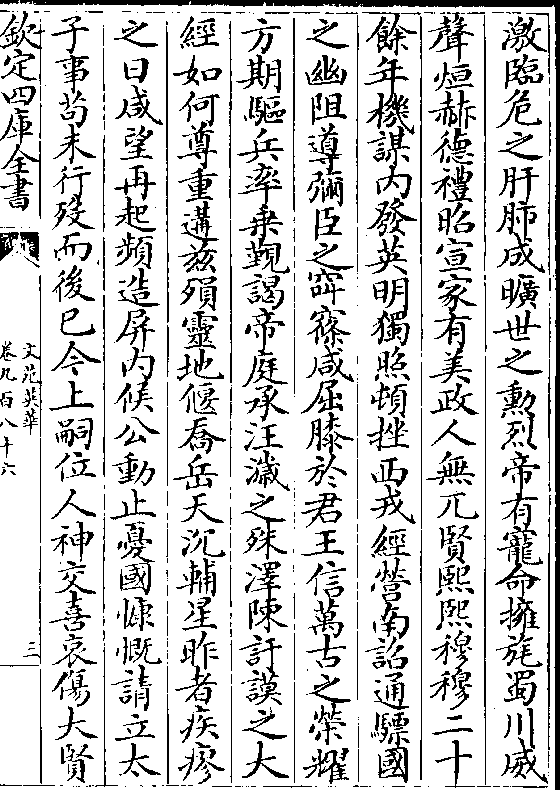 激臨危之肝肺成曠世之勳烈帝有寵命擁旄蜀川威
聲烜赫德禮昭宣家有美政人無兀賢熙熙穆穆二十
餘年機謀内發英明獨照頓挫西戎經營南詔通驃國
之幽阻導彌臣之窂寮咸屈膝於君王信萬古之榮耀
方期驅兵率乗覲謁帝庭承汪濊之殊澤陳訏謨之大
經如何尊重遘兹殞靈地偃喬岳天沉輔星昨者疾瘳
之日咸望再起頻造屏内候公動止憂國慷慨請立太
子事苟未行歿而後已今上嗣位人神交喜哀傷大賢
欽定四庫全書
文苑英華
卷九百八十六
三